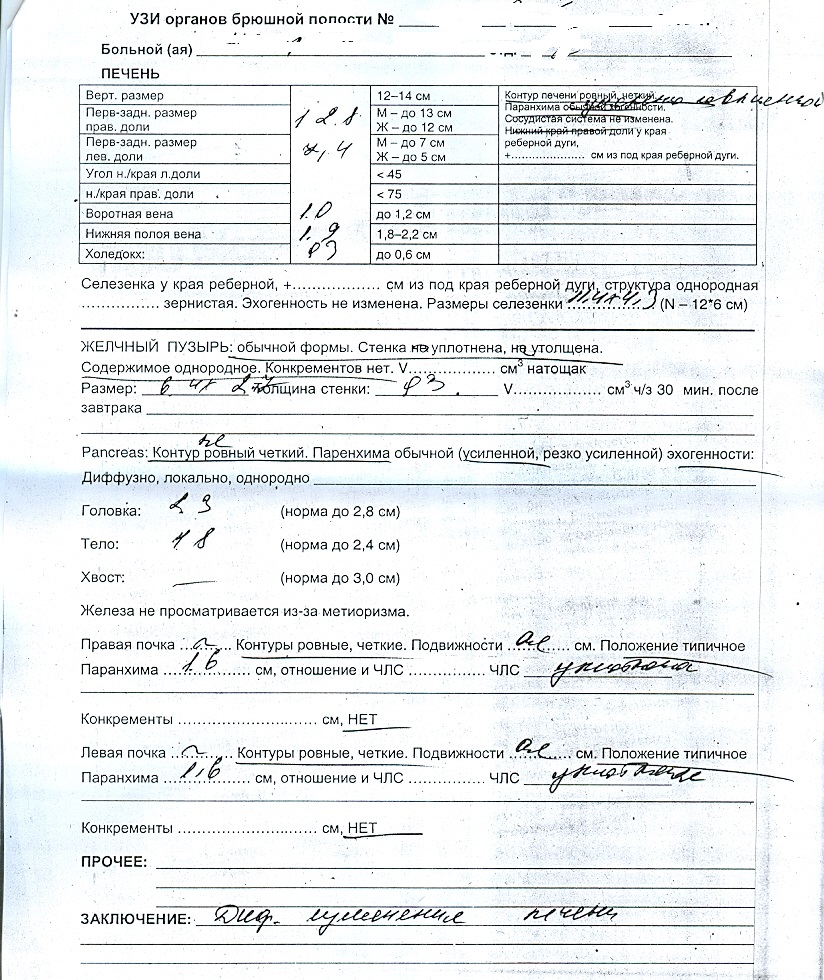 УЗИ органов брюшной полости № ____
Больной (ая) ____
ПЕЧЕНЬ
Верт. размер 12–14 см Контур печени ровный, четкий.
Паранхима обычной эхогенности.
Перв-задн. размер прав. доли 12.8 М – до 13 см Ж – до 12 см Сосудистая система не изменена.
Нижний край правой доли у края
Перв-задн. размер лев. доли 7,4 М – до 7 см Ж – до 5 см реберной дуги,
+.................... см из под края реберной дуги.
Угол н./края л.доли < 45
н./края прав. доли < 75
Воротная вена 1.0 до 1,2 см
Нижняя полоя вена 1.9 1,8–2,2 см
Холедокх: 03 до 0,6 см
Селезенка у края реберной, +.................. см из под края реберной дуги, структура однородная
................ зернистая. Эхогенность не изменена. Размеры селезенки (N – 12*6 см)
ЖЕЛЧНЫЙ ПУЗЫРЬ: обычной формы. Стенка не уплотнена, не утолщена.
Содержимое однородное. Конкрементов нет. V.................. см³ натощак
Размер: толщина стенки: 03 V.................. см³ ч/з 30 мин. после
завтрака
не
Pancreas: Контур ровный четкий. Паренхима обычной (усиленной, резко усиленной) эхогенности:
Диффузно, локально, однородно
Головка: 2 3 (норма до 2,8 см)
Тело: 1 8 (норма до 2,4 см)
Хвост: — (норма до 3,0 см)
Железа не просматривается из-за метиоризма.
Правая почка Контуры ровные, четкие. Подвижности см. Положение типичное
Паранхима 1.6 см, отношение и ЧЛС .............. ЧЛС уплотнена
Конкременты ......................... см, НЕТ
Левая почка Контуры ровные, четкие. Подвижности см. Положение типичное
Паранхима 1,6 см, отношение и ЧЛС .............. ЧЛС
Конкременты ......................... см, НЕТ
ПРОЧЕЕ:
ЗАКЛЮЧЕНИЕ: Диф. изменения печени